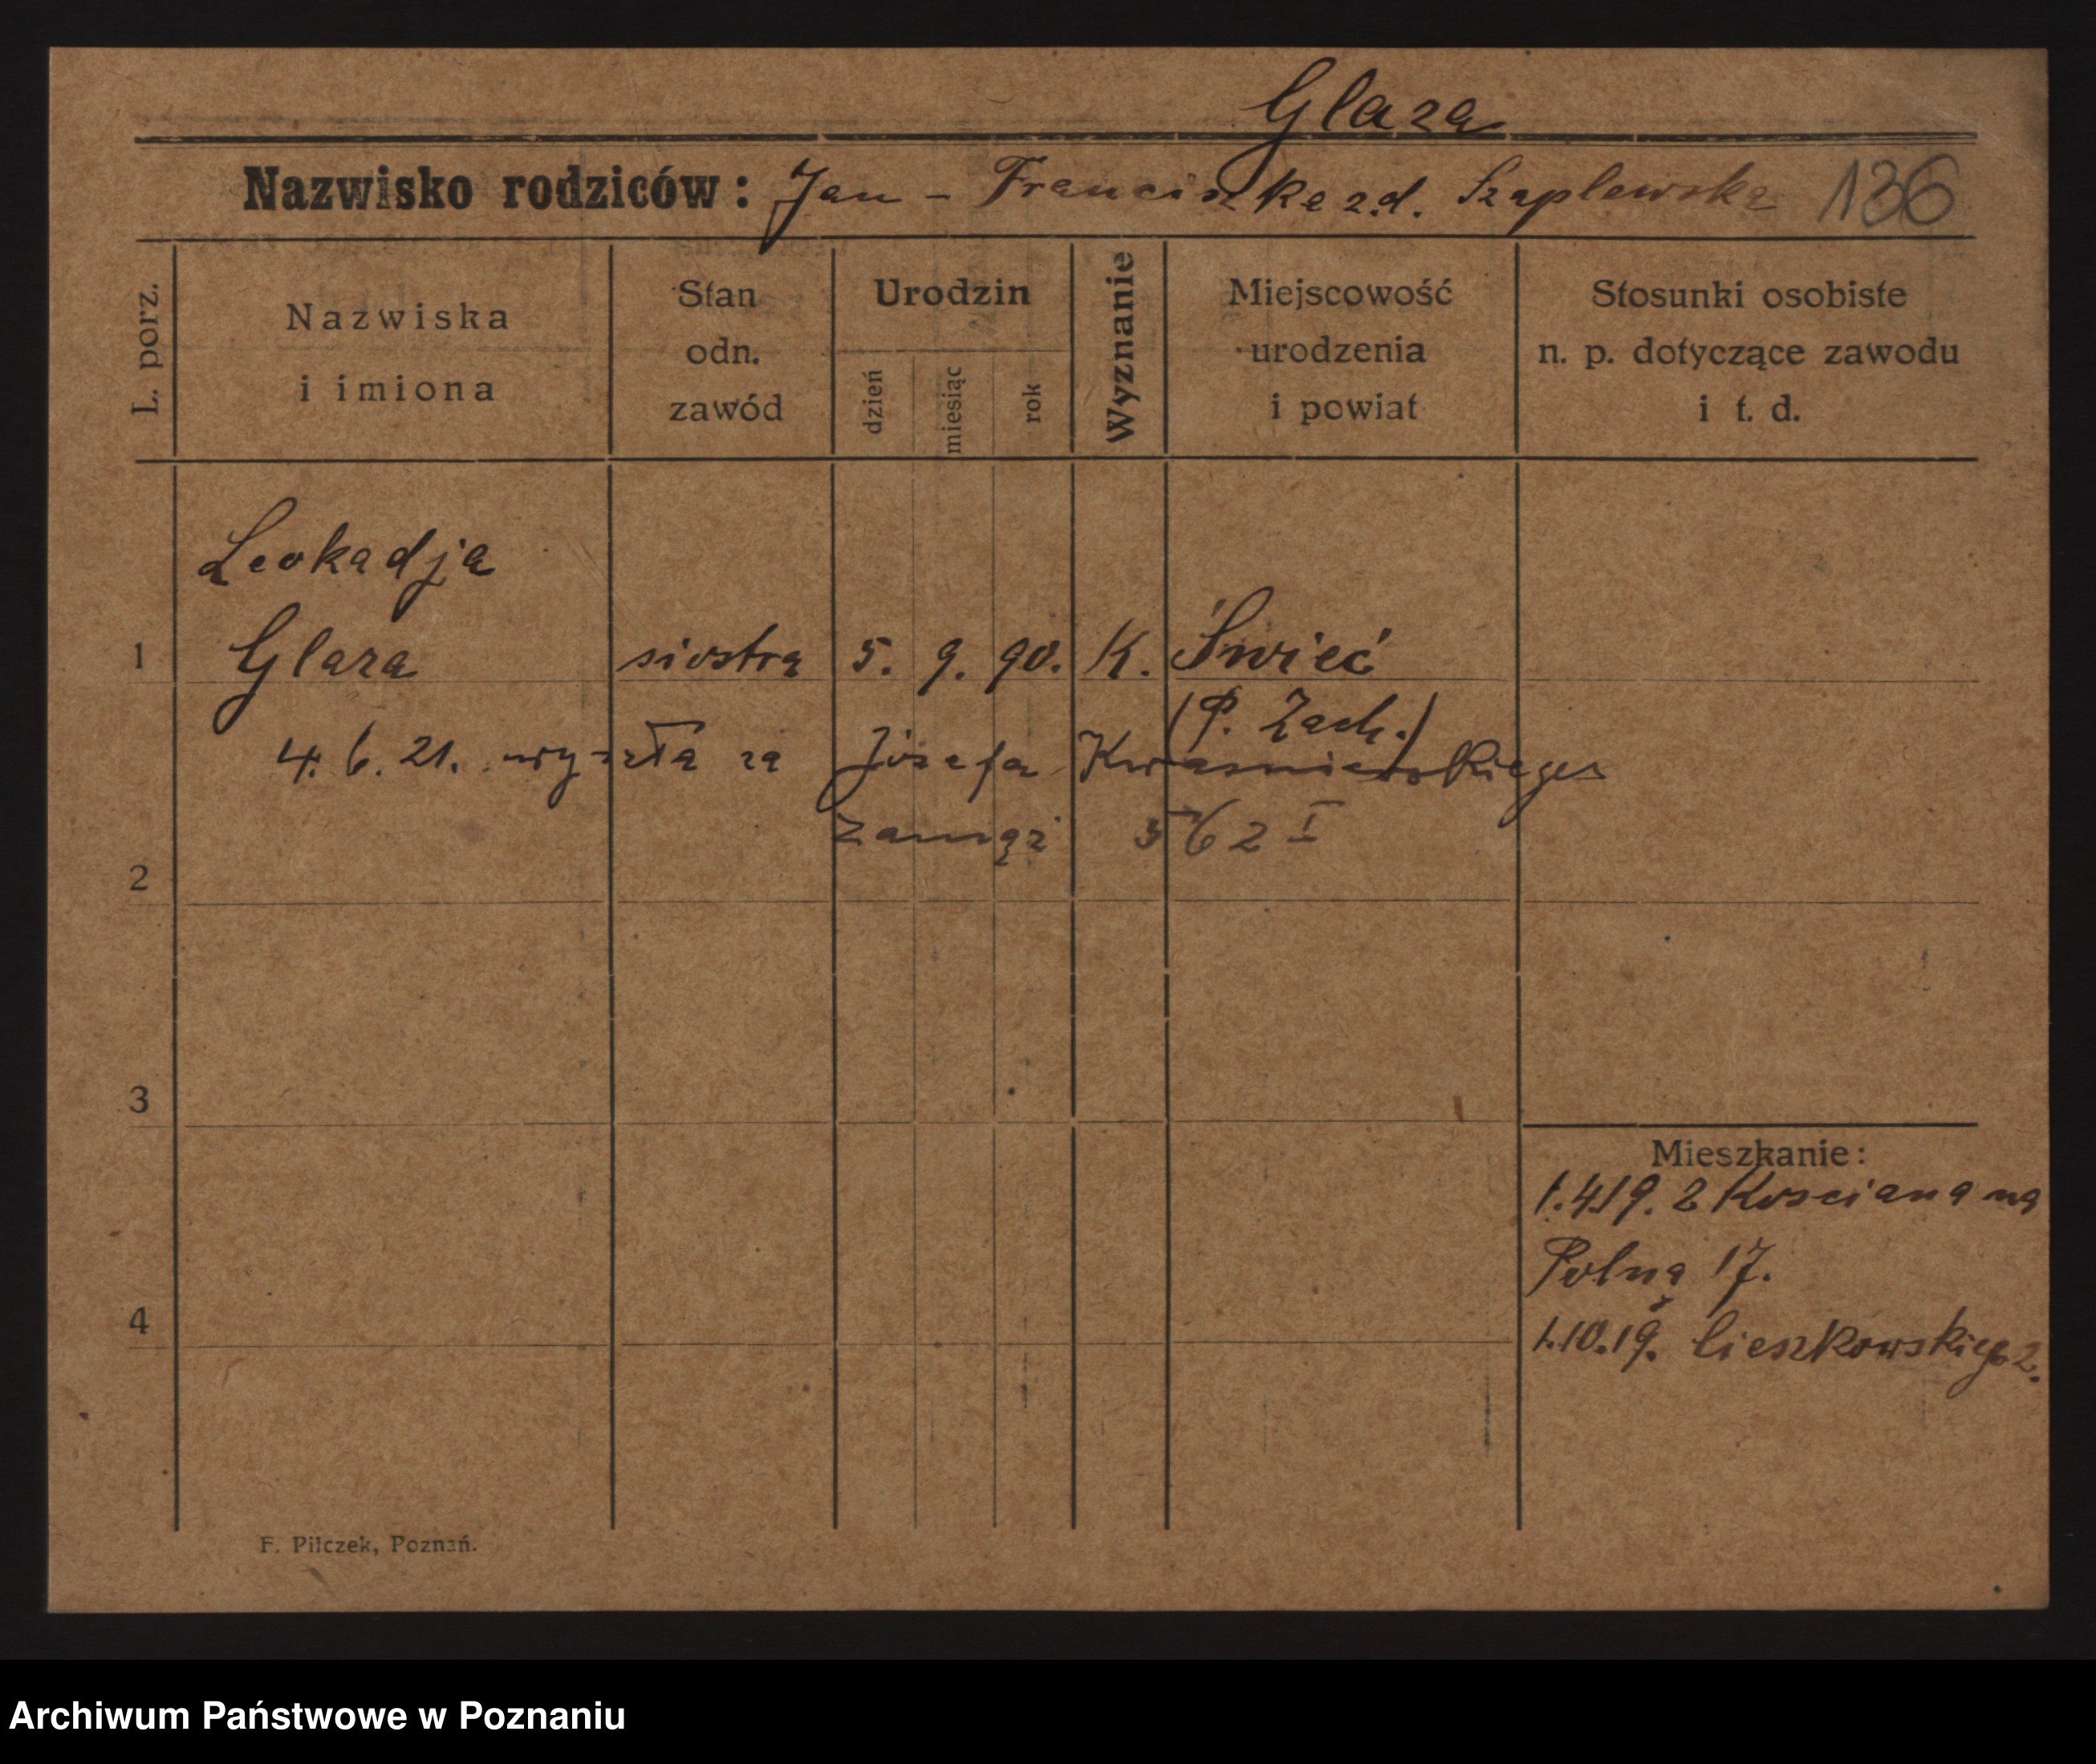 Glaza
Nazwisko rodziców: Jan - Franciszka z.d. Szaplewska 136
L. porz.
Nazwiska
i imiona
Stan
odn.
zawód
Urodzin
dzień
miesiąc
rok
Wyznanie
Miejscowość
urodzenia
i powiat
Stosunki osobiste
n. p. dotyczące zawodu
i t. d.
Leokadja
1 Glaza siostra 5. 9. 90. K. Świeć
(P. Zach.)
4. 6. 21. wyszła za Józefa Kwasniewskiego
zamąż 562 I
2
3
Mieszkanie:
1.4.19. z Kosciana na
Polną 17.
4
1.10.19. Cieszkowskiego 2.
F. Pilczek, Poznań.
Archiwum Państwowe w Poznaniu